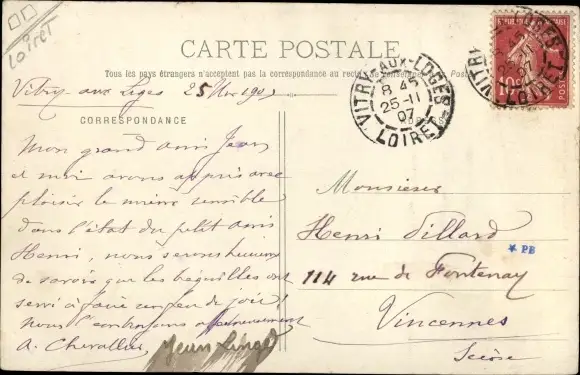 Loiret
CARTE POSTALE
Tous les pays étrangers n'acceptent pas la correspondance au recto
Vitry aux Loges 25 Nov 1907
CORRESPONDANCE
Mon grand ami Jean
et moi avons appris avec
plaisir le mieux sensible
dans l'état du petit ami
Henri, nous serons heureux
de savoir que les béquilles ont
servi à faire un feu de joie!
Nous l'embrassons affectueusement
A. Chevallier Jean
VITRY-AUX-LOGES
8 45
25-11
07
LOIRET
REPUBLIQUE FRANÇAISE
10
POSTES
LOIRET
Monsieur
Henri Villard
* PB
114 rue de Fontenay
Vincennes
Seine